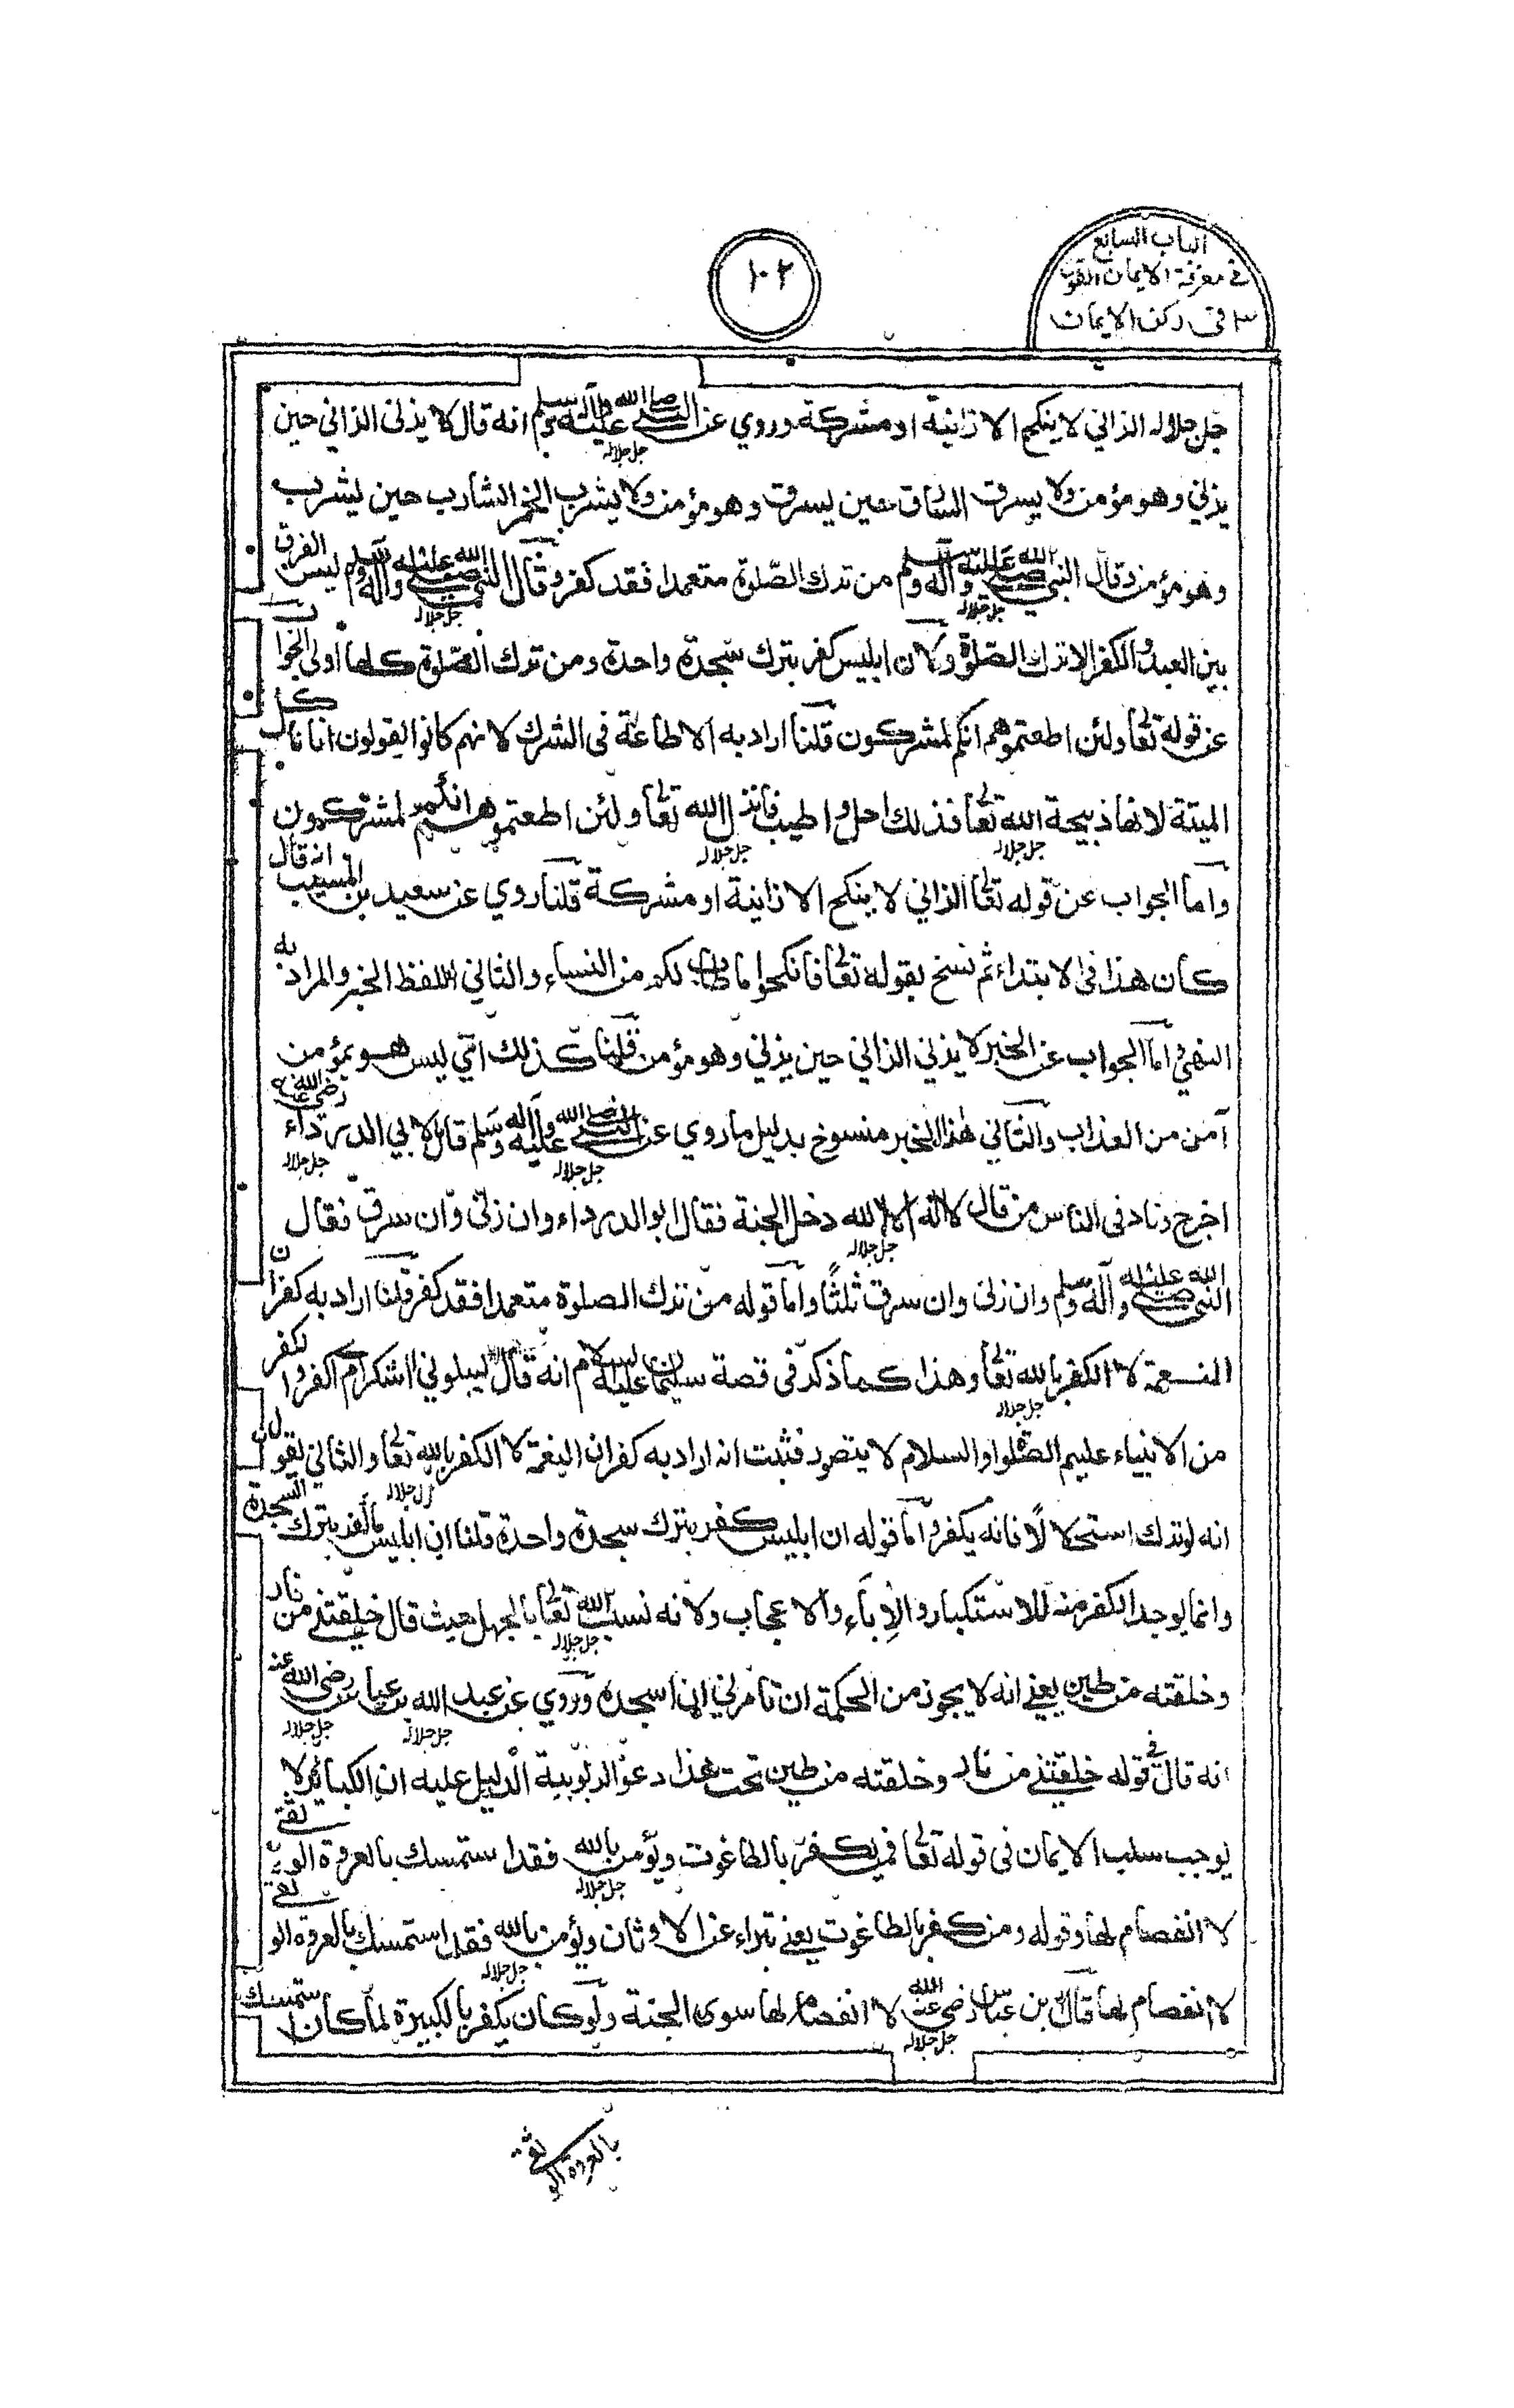 الباب السابع
في معرفة الايمان القول
٣ في ركن الايمان
١٠٢
جل جلاله الزاني لا ينكح الا زانية او مشركة وروي عن النبي صلى الله عليه وآله وسلم انه قال لا يزني الزاني حين
يزني وهو مؤمن ولا يسرق السارق حين يسرق وهو مؤمن ولا يشرب الخمر الشارب حين يشرب
وهو مؤمن وقال النبي صلى الله عليه وآله وسلم من ترك الصلوة متعمدا فقد كفر وقال النبي صلى الله عليه وآله وسلم ليس الفرق
بين العبد والكفر الا ترك الصلوة ولان ابليس كفر بترك سجدة واحدة ومن ترك الصلوة كلها اولى الجواب
عن قوله تعا ولئن اطعتموهم انكم لمشركون قلنا اراد به الاطاعة في الشرك لانهم كانوا يقولون انا نأكل
الميتة لانها ذبيحة الله تعا فذلك احل واطيب فانزل الله تعا ولئن اطعتموهم انكم لمشركون
واما الجواب عن قوله تعا الزاني لا ينكح الا زانية او مشركة قلنا روي عن سعيد بن المسيب انه قال
كان هذا في الابتداء ثم نسخ بقوله تعا فانكحوا ما طاب لكم من النساء والثاني اللفظ الخبر والمراد به
النهي اما الجواب عن الخبر لا يزني الزاني حين يزني وهو مؤمن قلنا كذلك اي ليس هو بمؤمن
آمن من العذاب والثاني هذا الخبر منسوخ بدليل ما روي عن النبي صلى الله عليه وآله وسلم قال لابي الدرداء رضي الله عنه
اخرج وناد في الناس من قال لا اله الا الله دخل الجنة فقال ابو الدرداء وان زنى وان سرق فقال
النبي صلى الله عليه وآله وسلم وان زنى وان سرق ثلثًا واما قوله من ترك الصلوة متعمدا فقد كفر قلنا اراد به كفران
النعمة لا الكفر بالله تعا وهذا كما ذكر في قصة سليمان عليه السلام انه قال ليبلوني ااشكر ام اكفر والكفر
من الانبياء عليهم الصلوا والسلام لا يتصور فثبت انه اراد به كفران النعمة لا الكفر بالله تعا والثاني نقول
انه لو ترك استحلالًا فانه يكفر واما قوله ان ابليس كفر بترك سجدة واحدة قلنا ان ابليس ما كفر بترك السجدة
وانما يوجد الكفر منه للاستكبار والإباء والاعجاب ولانه نسب الله تعا بالجهل حيث قال خلقتني من نار
وخلقته من طين يعني انه لا يجوز من الحكمة ان تأمرني ان اسجده وروي عن عبد الله بن عباس رضي الله عنه
انه قال في قوله خلقتني من نار وخلقته من طين تحت هذا دعوا لربوبية الدليل عليه ان الكبائر لا
يوجب سلب الايمان في قوله تعا فمن يكفر بالطاغوت ويؤمن بالله فقد استمسك بالعروة الوثقى
لا انفصام لها وقوله ومن كفر بالطاغوت يعني تبراء عن الاوثان ويؤمن بالله فقد استمسك بالعروة الوثقى
لا انفصام لها قال ابن عباس رضي الله عنه لا انفصام لها سوى الجنة ولو كان يكفر بالكبيرة لما كان استمسك
بالعروة الوثقى